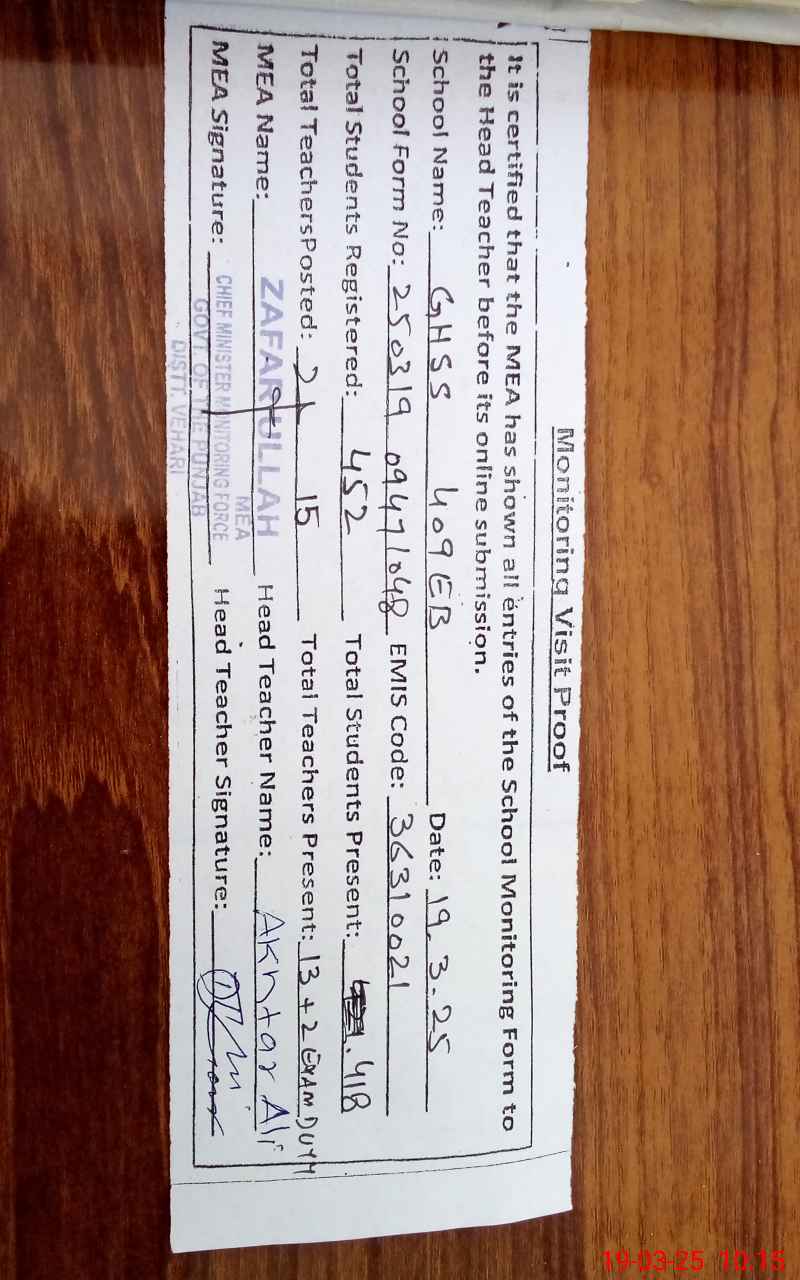 Monitoring Visit Proof
It is certified that the MEA has shown all entries of the School Monitoring Form to
the Head Teacher before its online submission.
School Name: GHSS 409EB Date: 19.3.25
School Form No: 250319 09471048 EMIS Code: 36310021
Total Students Registered: 452 Total Students Present: 418
Total TeachersPosted: 15 Total Teachers Present: 13 + 2 EXAM DUTY
MEA Name: ZAFAR ULLAH Head Teacher Name: Akhtar Ali
MEA
MEA Signature: CHIEF MINISTER MONITORING FORCE Head Teacher Signature:
GOVT. OF THE PUNJAB
DISTT. VEHARI
19-03-25 10:15